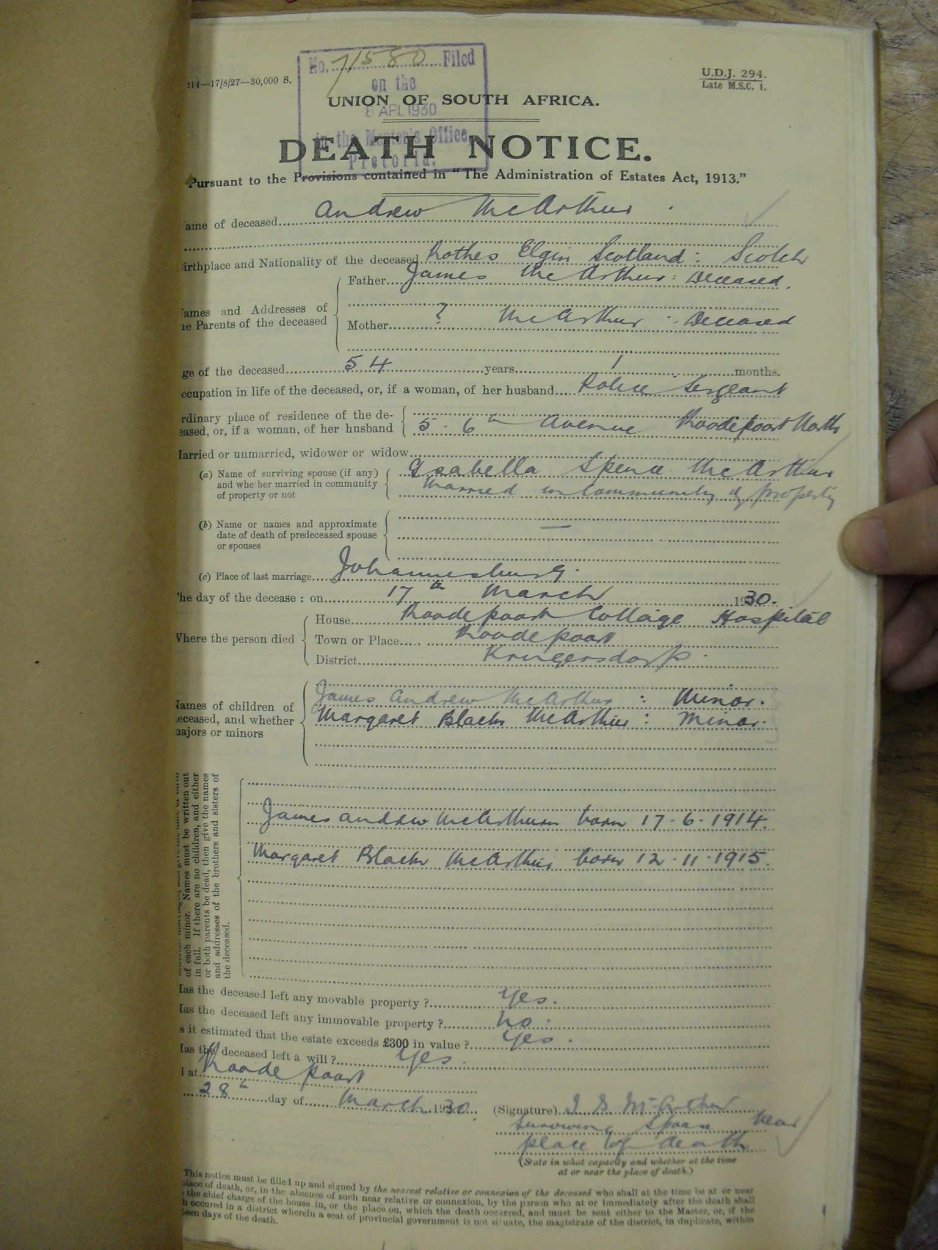 214—17/8/27—30,000 S.
No. 71580 Filed
on the
8 APL 1930
in the Master's Office
Pretoria.
U.D.J. 294.
Late M.S.C. 1.
UNION OF SOUTH AFRICA.
DEATH NOTICE.
Pursuant to the Provisions contained in "The Administration of Estates Act, 1913."
ame of deceased Andrew McArthur
irthplace and Nationality of the deceased Rothes Elgin Scotland: Scotch
ames and Addresses of
he Parents of the deceased
Father James McArthur: Deceased.
Mother ? McArthur: Deceased
ge of the deceased 54 years 1 months.
ccupation in life of the deceased, or, if a woman, of her husband Police Sergeant
rdinary place of residence of the de-
eased, or, if a woman, of her husband
5. 6th Avenue Roodepoort North
Married or unmarried, widower or widow
(a) Name of surviving spouse (if any)
and whether married in community
of property or not
Isabella Spence McArthur
Married in Community of property
(b) Name or names and approximate
date of death of predeceased spouse
or spouses
—
(c) Place of last marriage Johannesburg.
The day of the decease: on 17th March 1930.
Where the person died
House Roodepoort Cottage Hospital
Town or Place Roodepoort
District Krugersdorp.
Names of children of
deceased, and whether
majors or minors
James Andrew McArthur: Minor.
Margaret Black McArthur: Minor.
of each minor. Names must be written out
in full. If there are no children, and either
or both parents be dead, then give the names
and addresses of the brothers and sisters of
the deceased.
James Andrew McArthur born 17.6.1914.
Margaret Black McArthur born 12.11.1915.
Has the deceased left any movable property? Yes.
Has the deceased left any immovable property? No.
s it estimated that the estate exceeds £300 in value? Yes.
Has the deceased left a will? Yes.
d at Roodepoort
28th day of March 1930.
(Signature) I S McArthur
Surviving Spouse Near
place of death
(State in what capacity and whether at the time
at or near the place of death.)
This notice must be filled up and signed by the nearest relative or connexion of the deceased who shall at the time be at or near
place of death, or, in the absence of such near relative or connexion, by the person who at or immediately after the death shall
the chief charge of the house in, or the place on, which the death occurred, and must be sent either to the Master, or, if the
h occured in a district wherein a seat of provincial government is not situate, the magistrate of the district, in duplicate, within
een days of the death.